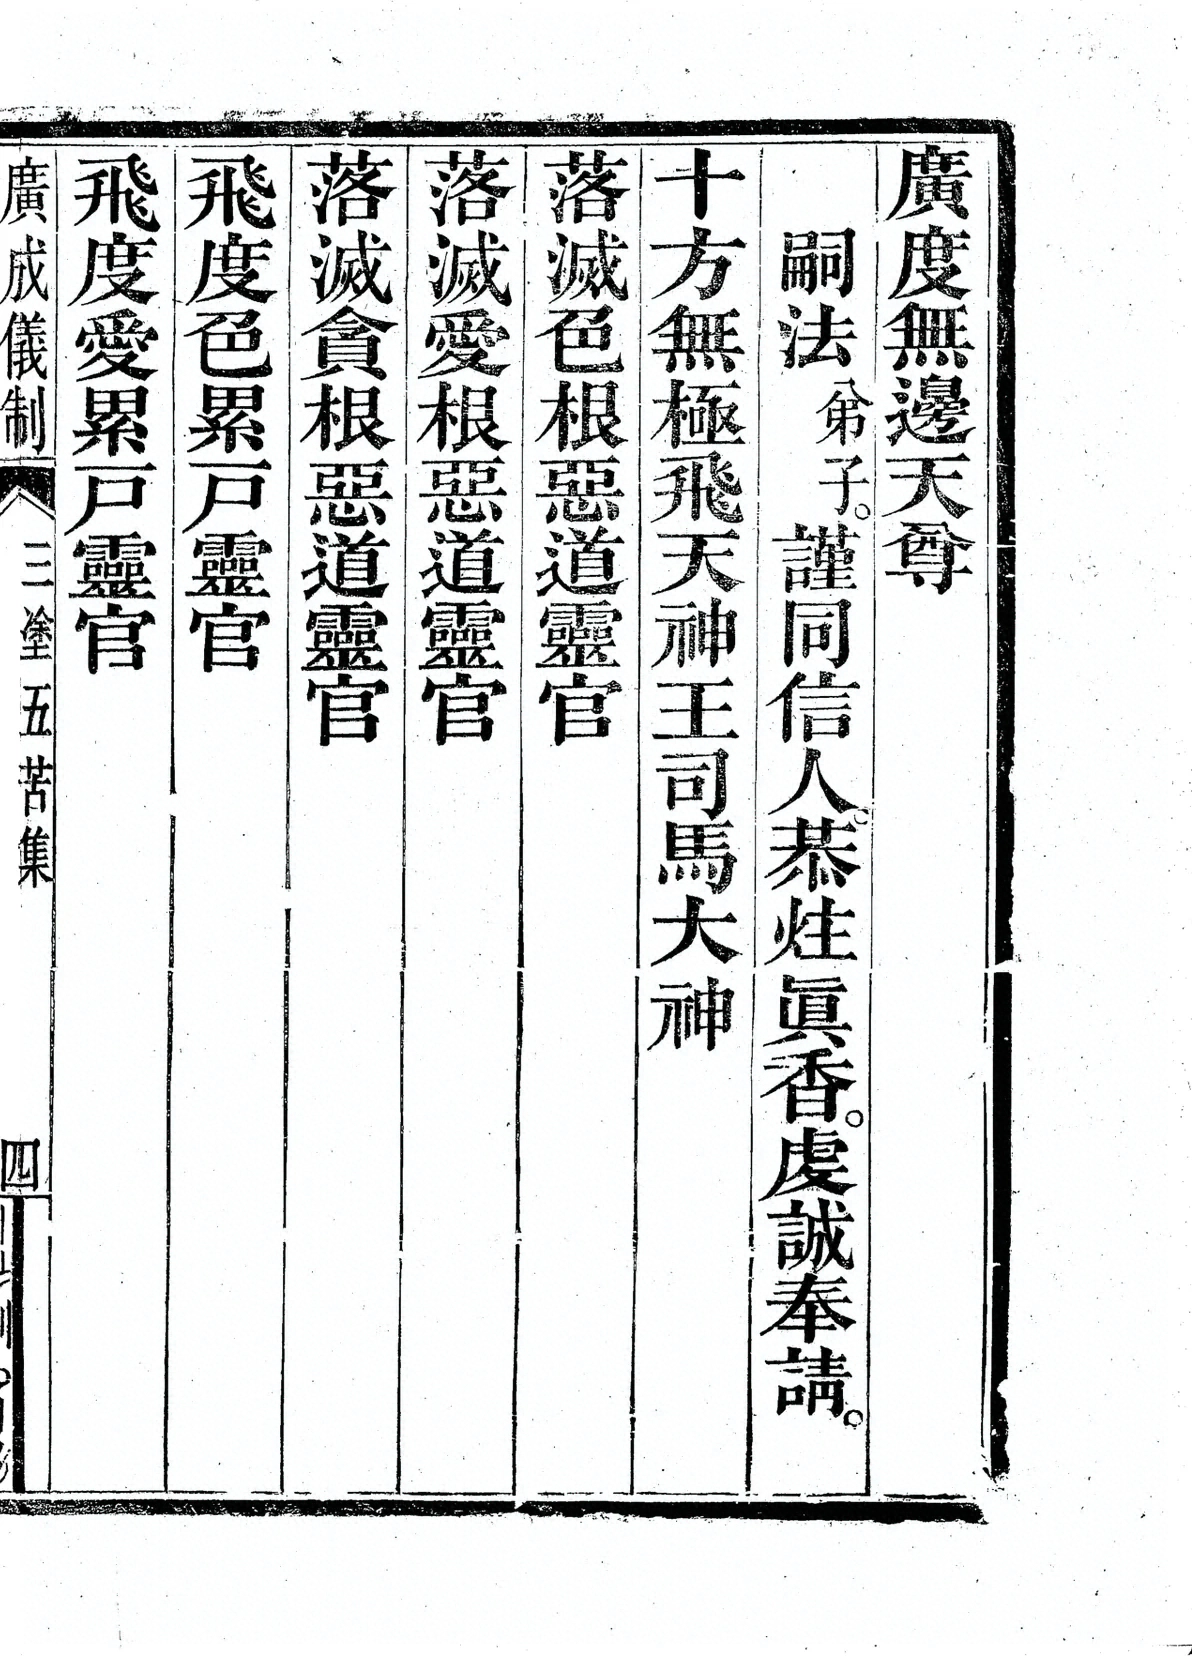 廣度無邊天尊
嗣法弟子。謹同信人。恭炷眞香。虔誠奉請。
十方無極飛天神王司馬大神
落滅色根惡道靈官
落滅愛根惡道靈官
落滅貪根惡道靈官
飛度色累戸靈官
飛度愛累戸靈官
廣成儀制
三塗五苦集
四